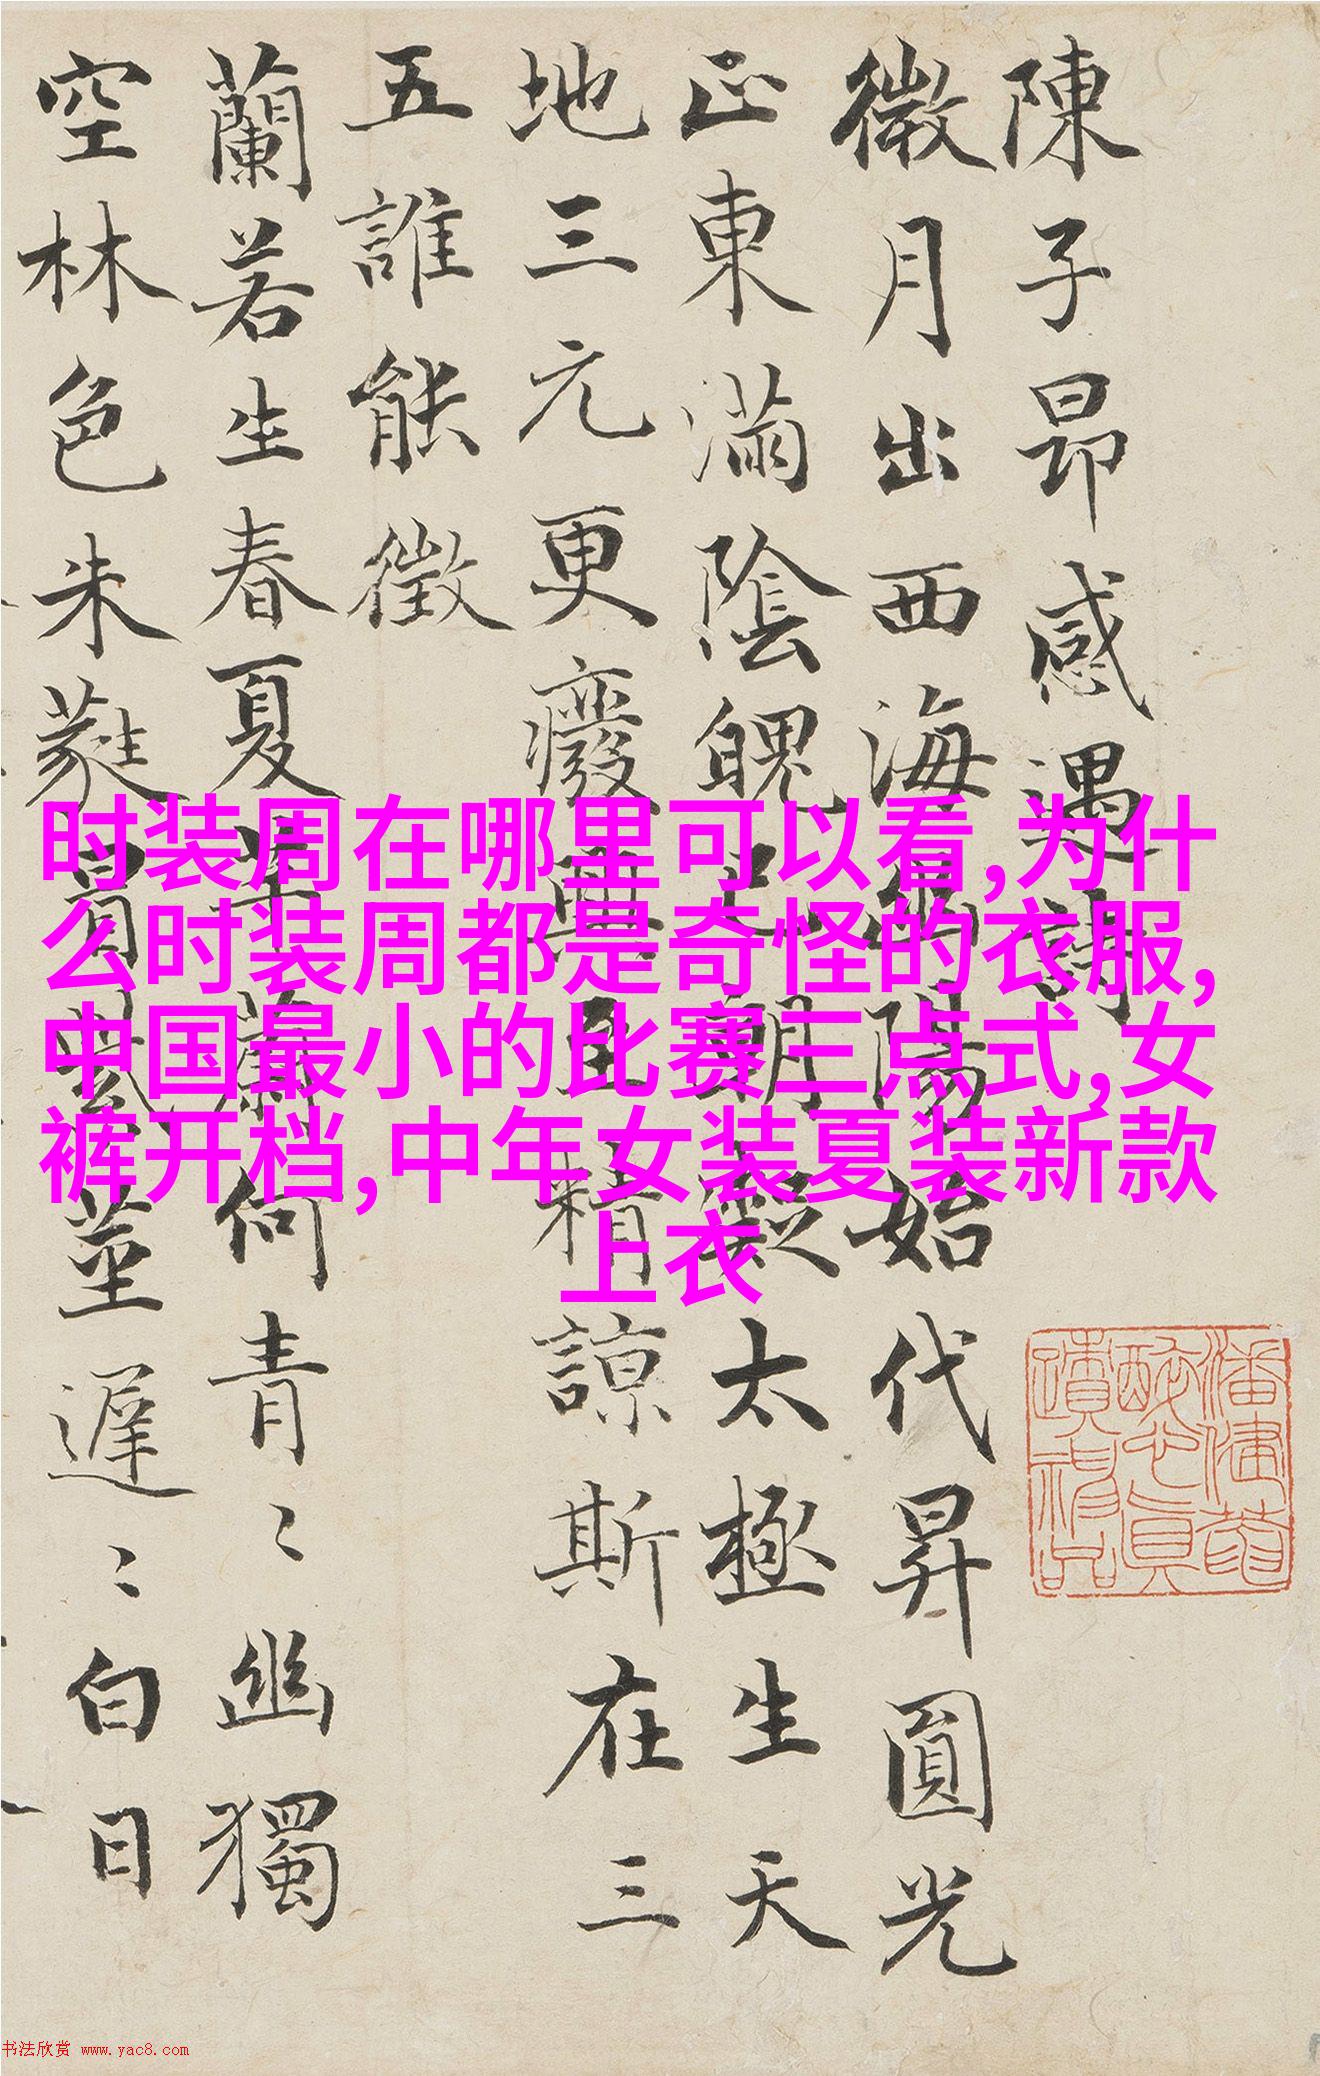 陳子昂感遇詩
微月出西海幽陽始代昇圓光
正東滿陰魄已朝凝太極生天
地三元更癈興至精諒斯在三
五誰能徵
蘭若生春夏芊蔚何青〻幽獨
空林色朱蕤冒紫莖遲〻白日
时装周在哪里可以看,为什
么时装周都是奇怪的衣服,
中国最小的比赛三点式,女
裤开档,中年女装夏装新款
上衣
书法欣赏 www.yac8.com